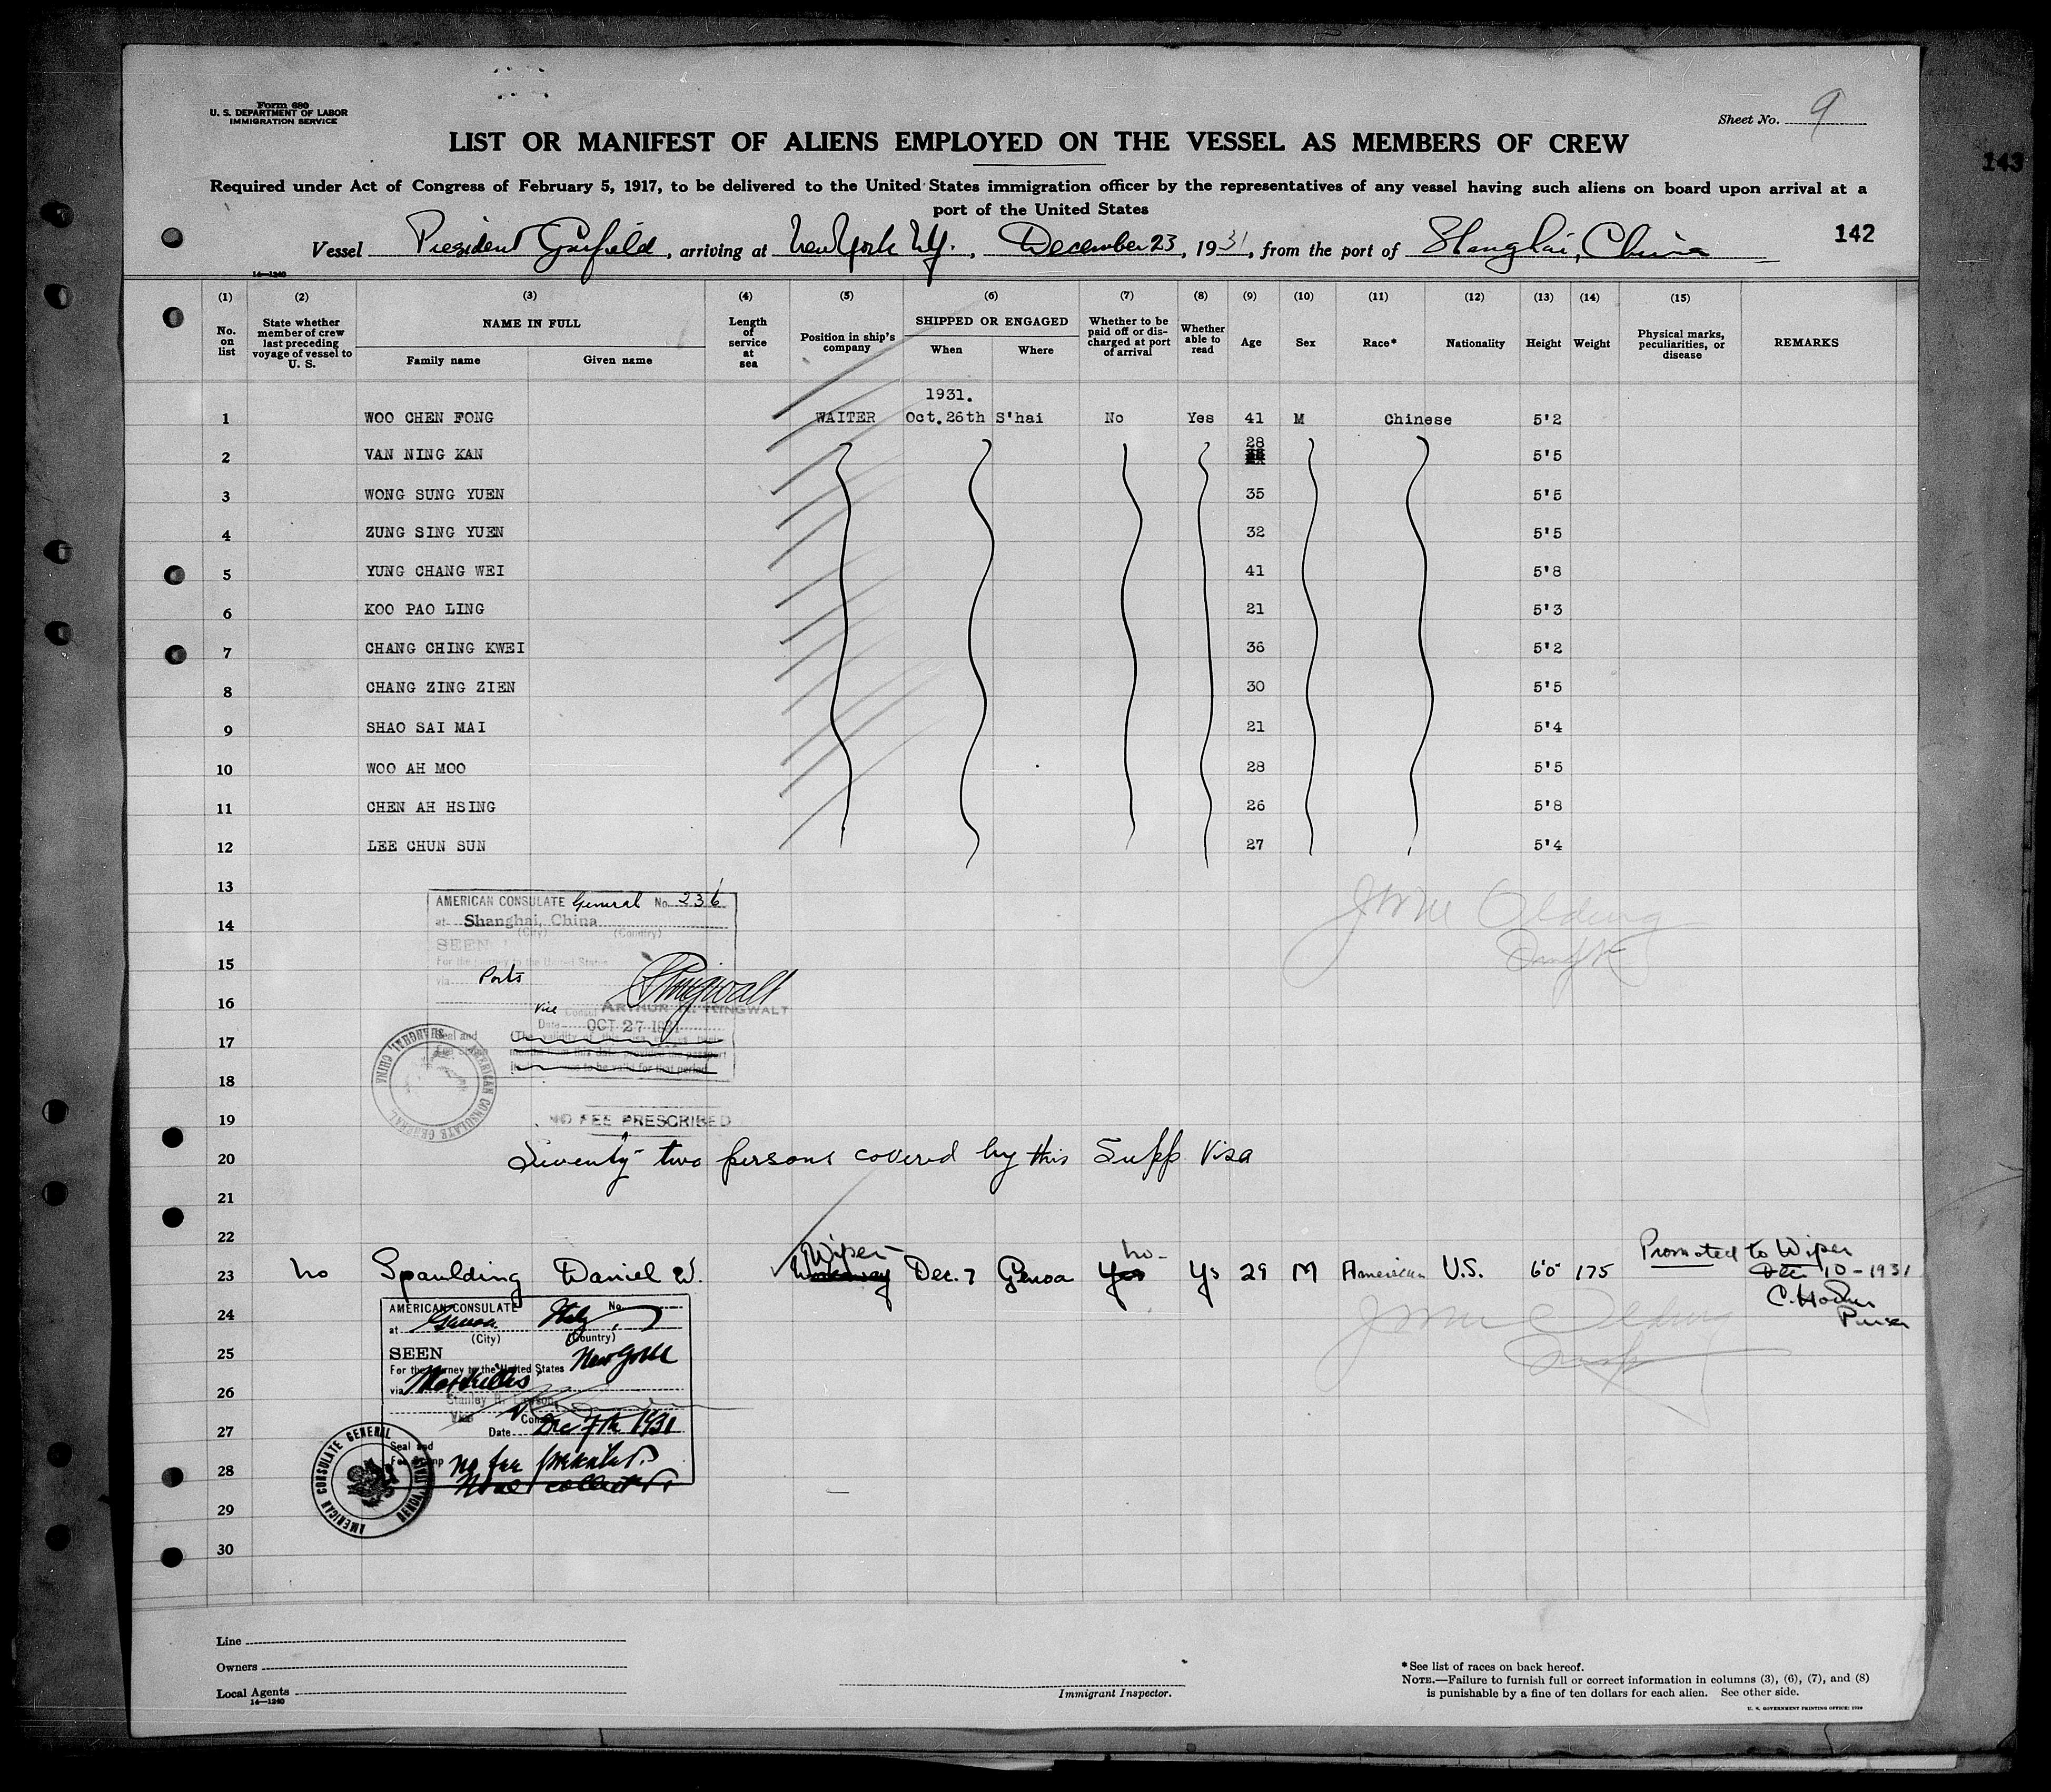 Form 680
U. S. DEPARTMENT OF LABOR
IMMIGRATION SERVICE
Sheet No. 9
LIST OR MANIFEST OF ALIENS EMPLOYED ON THE VESSEL AS MEMBERS OF CREW
143
Required under Act of Congress of February 5, 1917, to be delivered to the United States immigration officer by the representatives of any vessel having such aliens on board upon arrival at a
port of the United States
142
Vessel President Garfield, arriving at New York N.Y., December 23, 1931, from the port of Shanghai, China
14—1240
(1) (2) (3) (4) (5) (6) (7) (8) (9) (10) (11) (12) (13) (14) (15)
No. on list
State whether member of crew last preceding voyage of vessel to U. S.
NAME IN FULL
Family name
Given name
Length of service at sea
Position in ship's company
SHIPPED OR ENGAGED
When
Where
Whether to be paid off or discharged at port of arrival
Whether able to read
Age
Sex
Race*
Nationality
Height
Weight
Physical marks, peculiarities, or disease
REMARKS
1931.
1 WOO CHEN FONG WAITER Oct.26th S'hai No Yes 41 M Chinese 5'2
2 VAN NING KAN 28 5'5
3 WONG SUNG YUEN 35 5'5
4 ZUNG SING YUEN 32 5'5
5 YUNG CHANG WEI 41 5'8
6 KOO PAO LING 21 5'3
7 CHANG CHING KWEI 36 5'2
8 CHANG ZING ZIEN 30 5'5
9 SHAO SAI MAI 21 5'4
10 WOO AH MOO 28 5'5
11 CHEN AH HSING 26 5'8
12 LEE CHUN SUN 27 5'4
13
AMERICAN CONSULATE General No. 236
14
at Shanghai, China
(City) (Country)
SEEN
For the journey to the United States
15
via Ports
16
Vice Consul ARTHUR R. RINGWALT
Date OCT 27 1931
17
Seal and
18
AMERICAN CONSULATE GENERAL SHANGHAI, CHINA
19
NO FEE PRESCRIBED
20
Seventy-two persons covered by this Supp Visa
21
22
23 No Spaulding Daniel W. Wiper Workaway Dec. 7 Genoa No Yes Ys 29 M American U.S. 6'0" 175
Promoted to Wiper
Dec 10-1931
Purser
24
AMERICAN CONSULATE No.
at Genoa Italy
(City) (Country)
25
SEEN
For the journey to the United States New York
26
via Marseilles
27
Vice Consul
Date Dec 7th 1931
28
Seal and
Fee Stamp no fee prescribed
AMERICAN CONSULATE GENERAL GENOA, ITALY
29
30
Line
Owners
Local Agents
14—1240
Immigrant Inspector.
*See list of races on back hereof.
NOTE.—Failure to furnish full or correct information in columns (3), (6), (7), and (8)
is punishable by a fine of ten dollars for each alien. See other side.
U. S. GOVERNMENT PRINTING OFFICE: